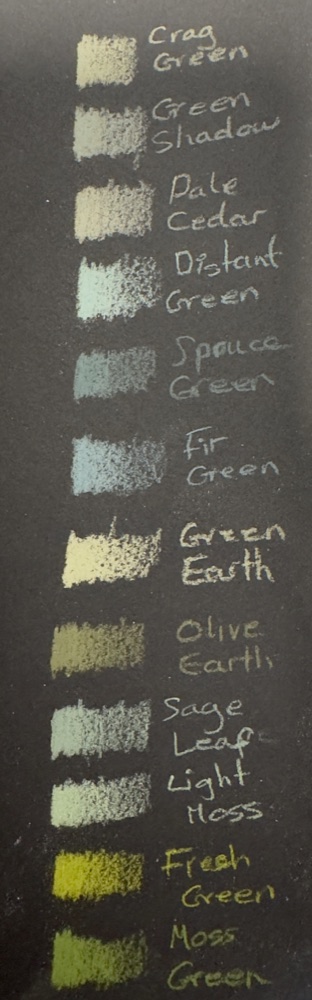 Crag
Green
Green
Shadow
Pale
Cedar
Distant
Green
Spruce
Green
Fir
Green
Green
Earth
Olive
Earth
Sage
Leaf
Light
Moss
Fresh
Green
Moss
Green